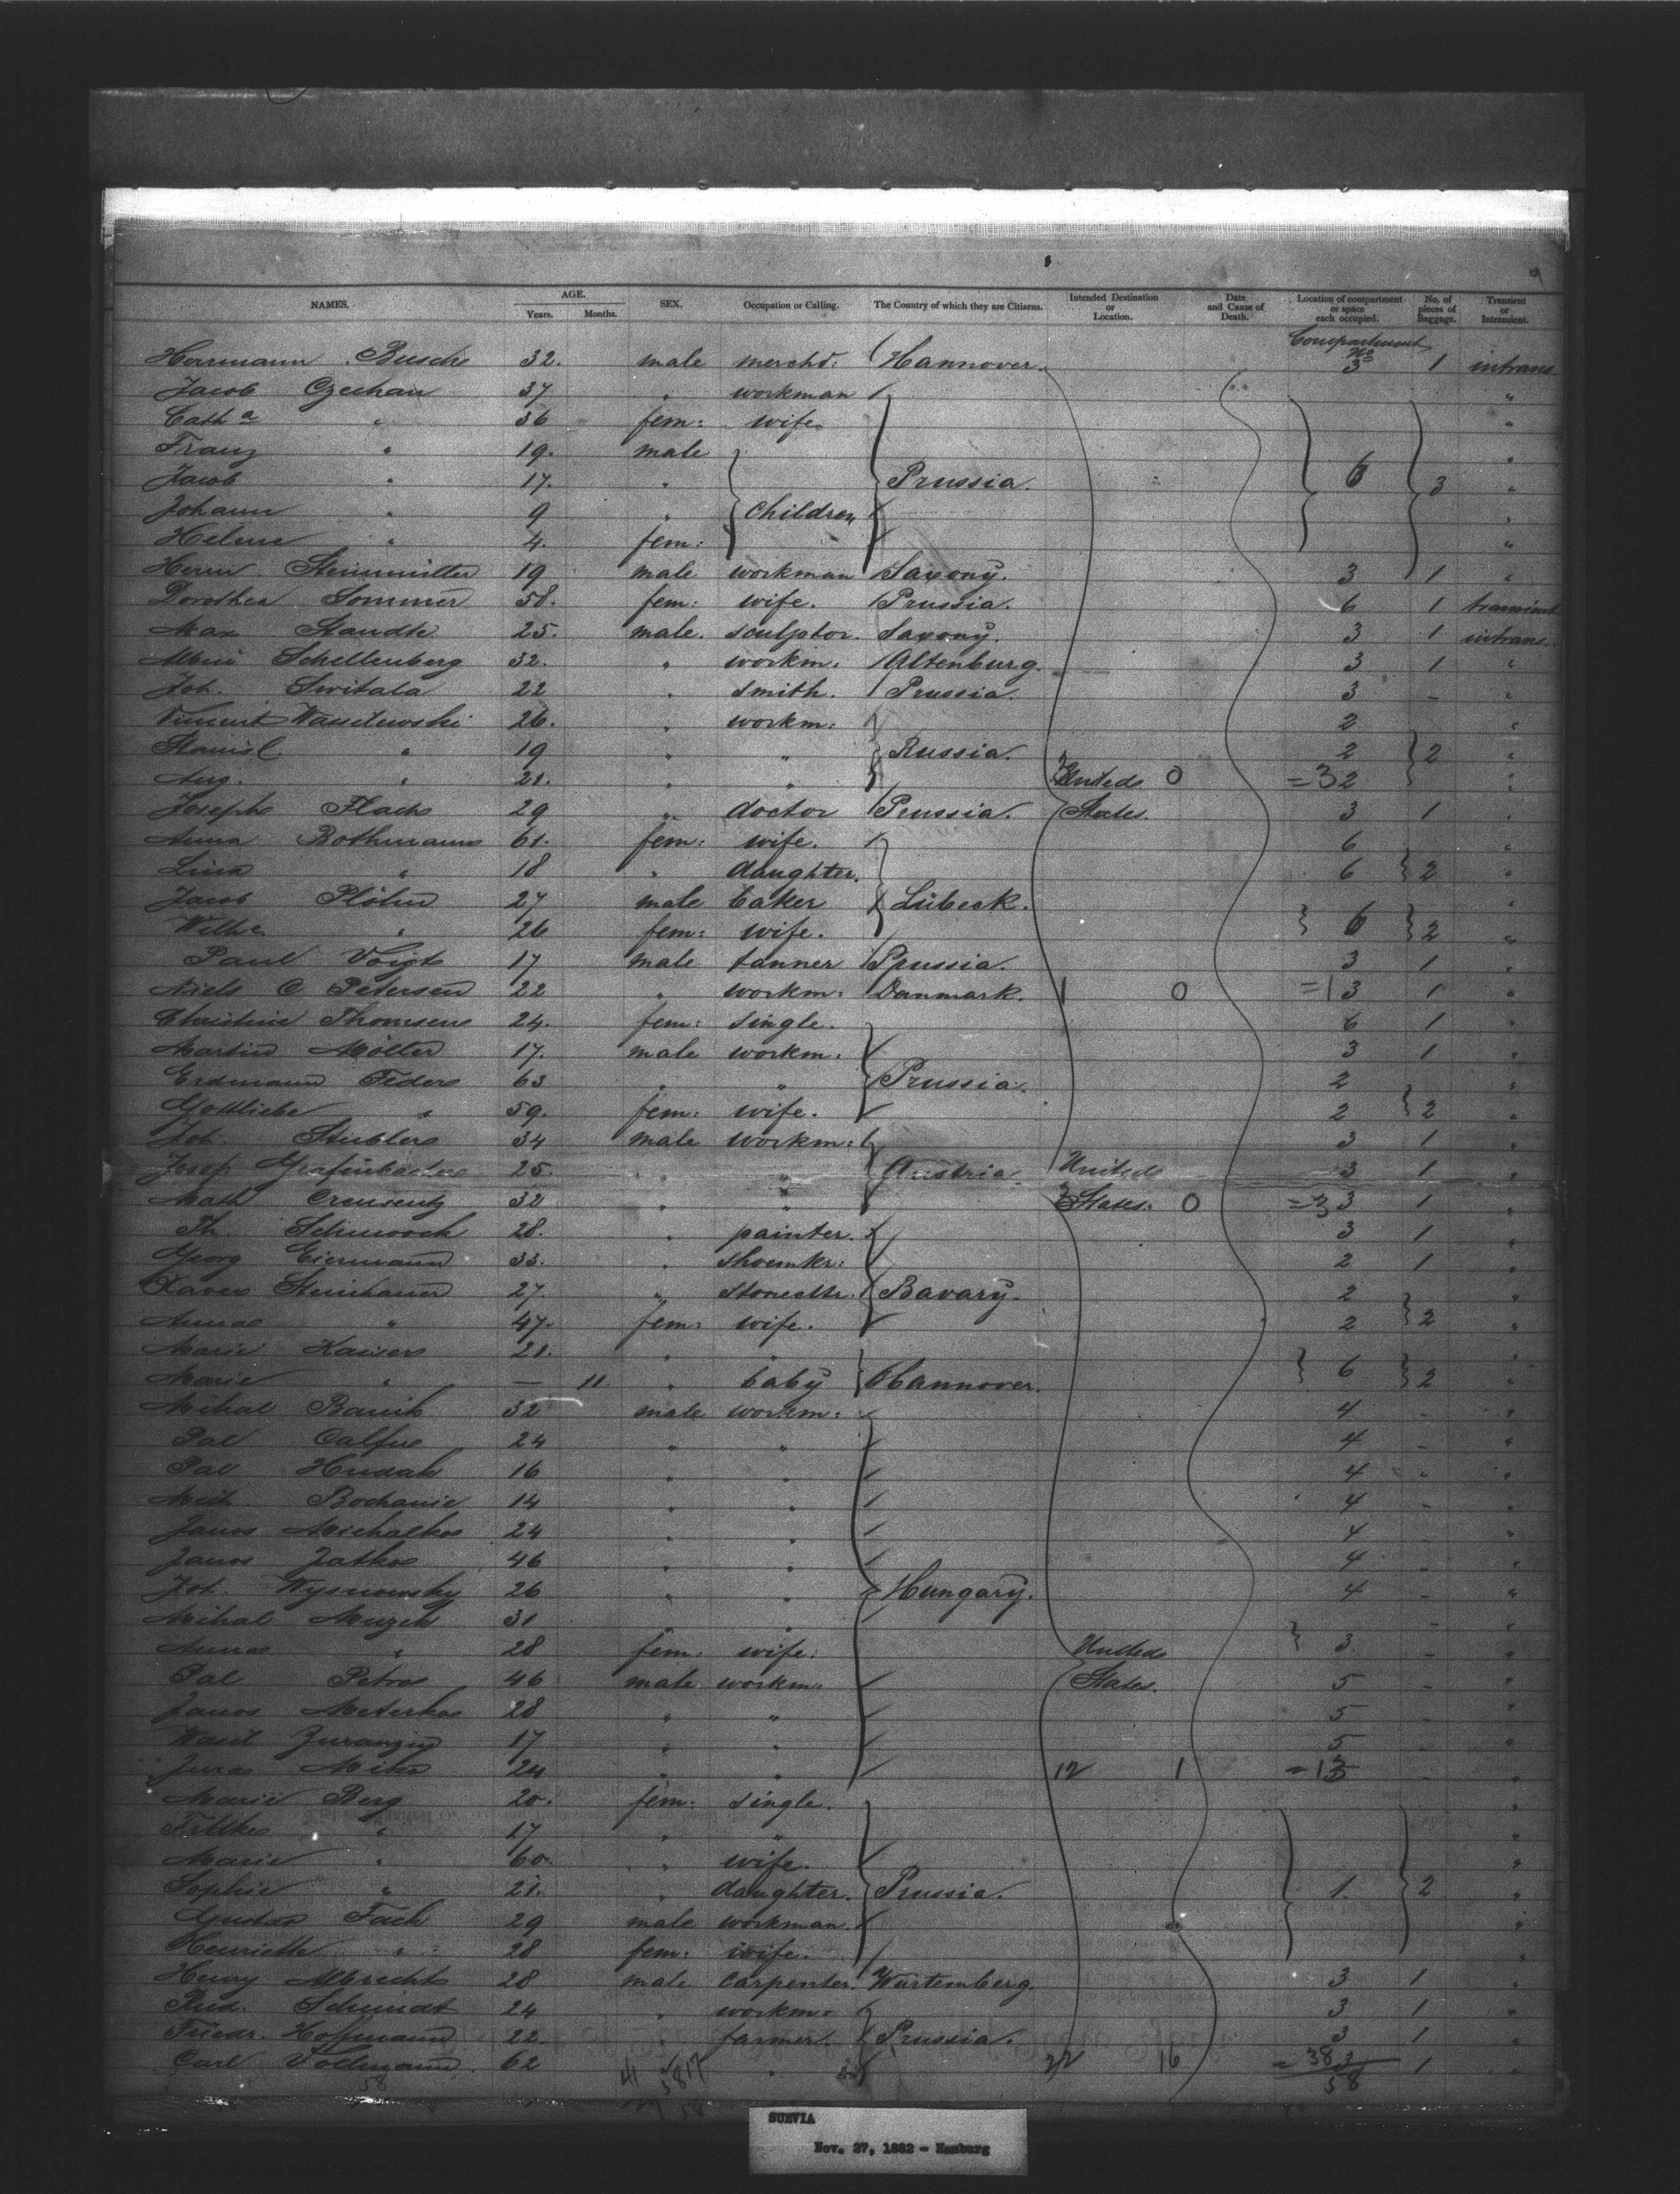 9
NAMES. AGE. SEX. Occupation or Calling. The Country of which they are Citizens. Intended Destination or Location. Date and Cause of Death. Location of compartment or space each occupied. No. of pieces of Baggage. Transient or Intransient.
Years. Months.
Compartment No
Herrmann Busche 32. male merchdt: Hannover. 3 1 intrans
Jacob Czechan 37 " workman "
Catha " 36 fem: wife "
Franz " 19. male "
Jacob " 17. " Prussia. 6 3 "
Johann " 9 " Children "
Helene " 4. fem: "
Herm Steinmüller 19 male workman Saxony. 3 1 "
Dorothea Sommer 58. fem: wife. Prussia. 6 1 transient
Max Staudte 25. male. sculptor. Saxony. 3 1 intrans.
Schellenberg 32. " workm: Altenburg. 3 1 "
Joh. Switala 22 " smith. Prussia. 3 - "
Vincent Wassilewski 26. " workm: 2 "
Stanisl. " 19 " " Russia. 2 2 "
Aug. " 21. " " 3 United 0 =3 2 "
Joseph Flach 29 " doctor Prussia. States. 3 1 "
Anna Bothmann 61. fem: wife. 6 "
Lina " 18 " daughter. 6 2 "
Jacob Plöhn 27 male baker Lübeck. "
Wilhe " 26 fem: wife. 6 2 "
Paul Voigt 17 male tanner Prussia. 3 1 "
Niels C Petersen 22 " workm: Danmark. 1 0 =1 3 1 "
Christine Thomsen 24. fem: single. 6 1
Martin Möller 17. male workm: 3 1 "
Erdmann Feder 63 " " Prussia. 2 "
Gottliebe " 59. fem: wife. 2 2 "
Joh. Stübler 34 male workm: 3 1 "
Josep 25. " " Austria. United 3 1 "
Math 32 " " 3 States. 0 =3 3 1 "
Th. Schmooch 28. " painter. 3 1 "
Georg Eiermann 33. " shoemkr: 2 1 "
Xaver Steinhauer 27. " Bavary. 2 "
Anna " 47. fem: wife. 2 2 "
Marie Kaiser 21. " " "
Marie " — 11. " baby Hannover. 6 2 "
Mihal 32 male workm: 4 - "
Pal 24 " " 4 - "
Pal Hudak 16 " " 4 - "
Mich. 14 " " 4 - "
Janos Michalko 24 " " 4 - "
Janos Jatko 46 " " 4 - "
Joh. Wysnowsky 26 " " Hungary. 4 - "
Mihal 31 " " - "
Anna " 28 fem: wife. United 3. - "
Pal Petro 46 male workm: States. 5 - "
Janos 28 " " 5 - "
Wasil 17 " " 5 "
Miko 24 " " 12 1 =13 5 - "
Marie Berg 20. fem: single. "
" 17 " " "
Marie " 60. " wife. "
Sophie " 21. " daughter. Prussia. 1. 2 "
Gustav Fach 29 male workman. "
Henriette " 28 fem: wife. "
Henry Albrecht 28 male carpenter. Würtemberg. 3 1 "
Rud. Schmidt 24 " workm: 3 1 "
Friedr. Hoffmann 22. " farmer. Prussia. 3 1 "
Carl Vollmann 62 " 22 16 =38 3 1 "
58 41 17 58 58
SUEVIA
Nov. 27, 1882 - Hamburg